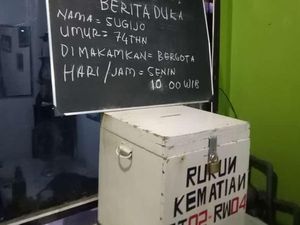 BERITA DUKA
NAMA = SUGIJO
UMUR = 74THN
DIMAKAMKAN = BERGOTA
HARI / JAM = SENIN
10 00 WIB
RUKUN
KEMATIAN
RT02-RW04